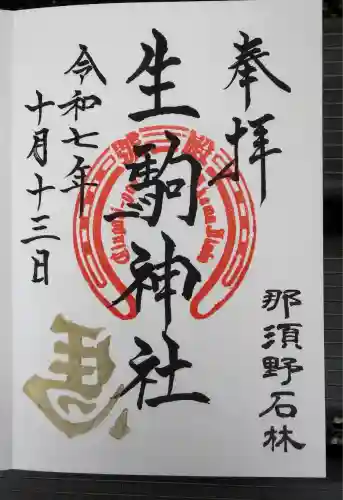 奉拝
那須野石林
生駒神社
令和七年
十月十三日
馬